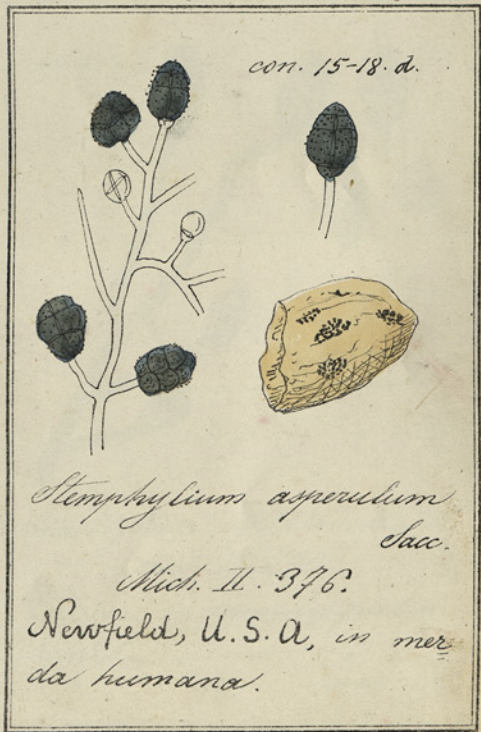 con. 15-18. d.
Stemphylium asperulum
Sacc.
Mich. II. 376.
Newfield, U.S.A, in mer
da humana.